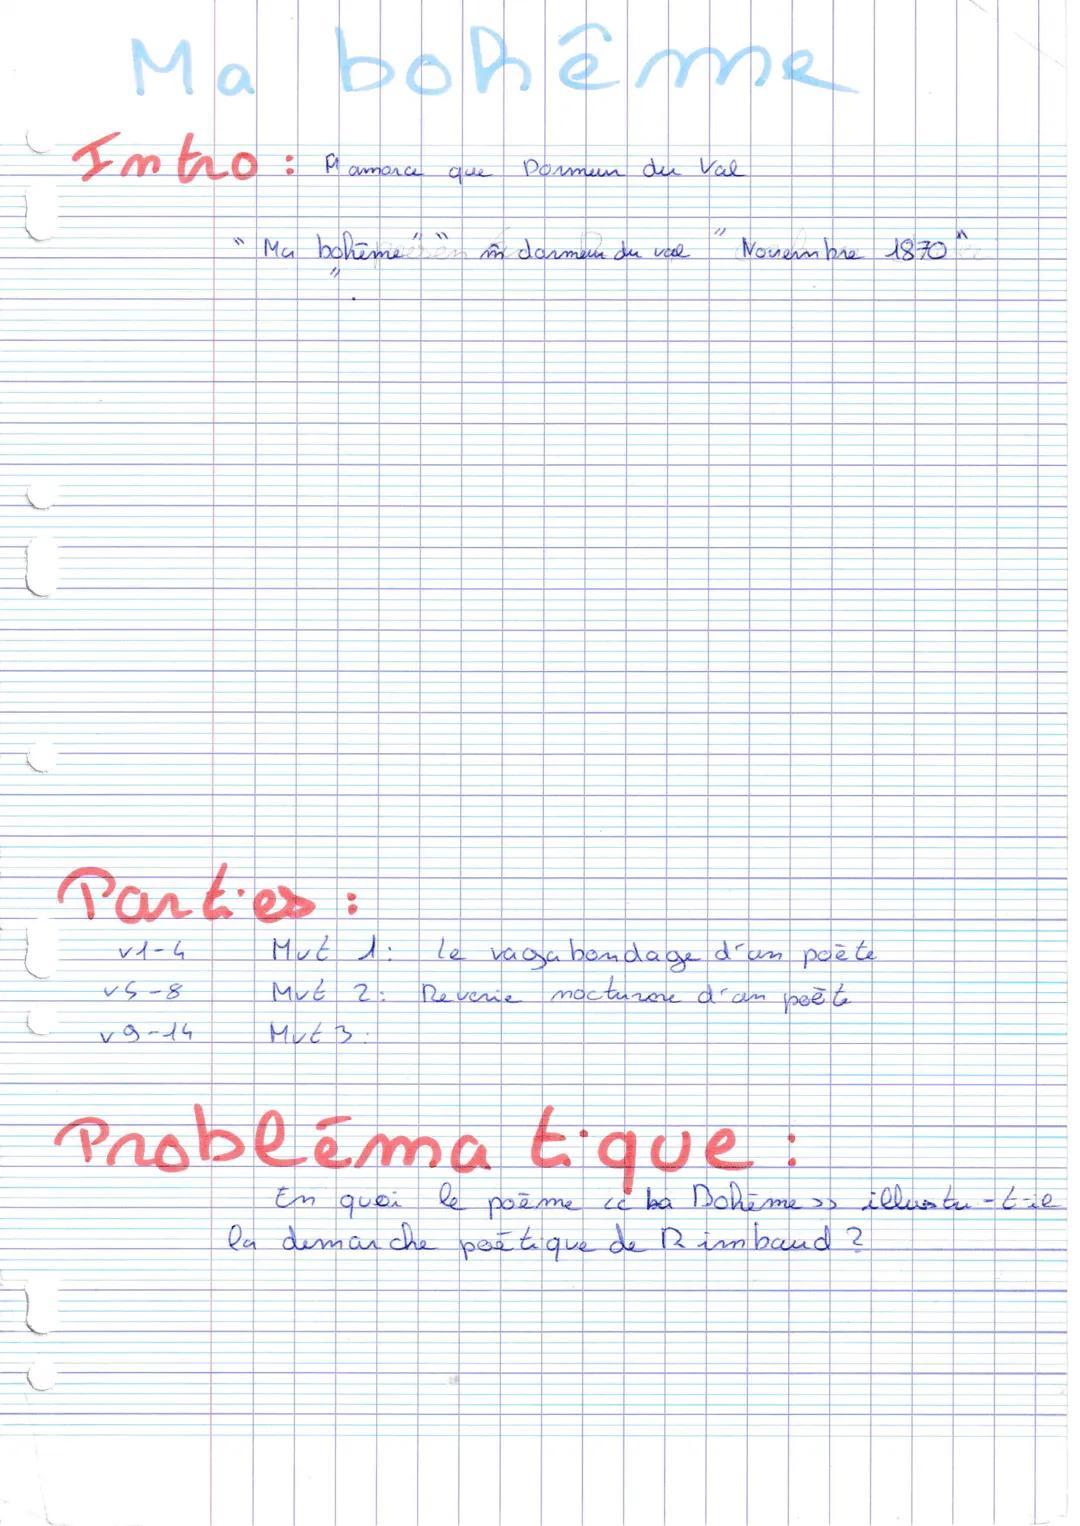 Ma bohême
Intro : M amorce que Dormeur du Val
" Ma bohème " " m̂ dormeur du val " Novembre 1870 "
"
Parties :
v1-4 Mvt 1: Le vagabondage d'un poète
v5-8 Mvt 2: Reverie nocturne d'un poète
v9-14 Mvt 3:
Probléma tique :
En quoi le poème << La Bohème >> illustre-t-il
la demarche poétique de Rimbaud ?